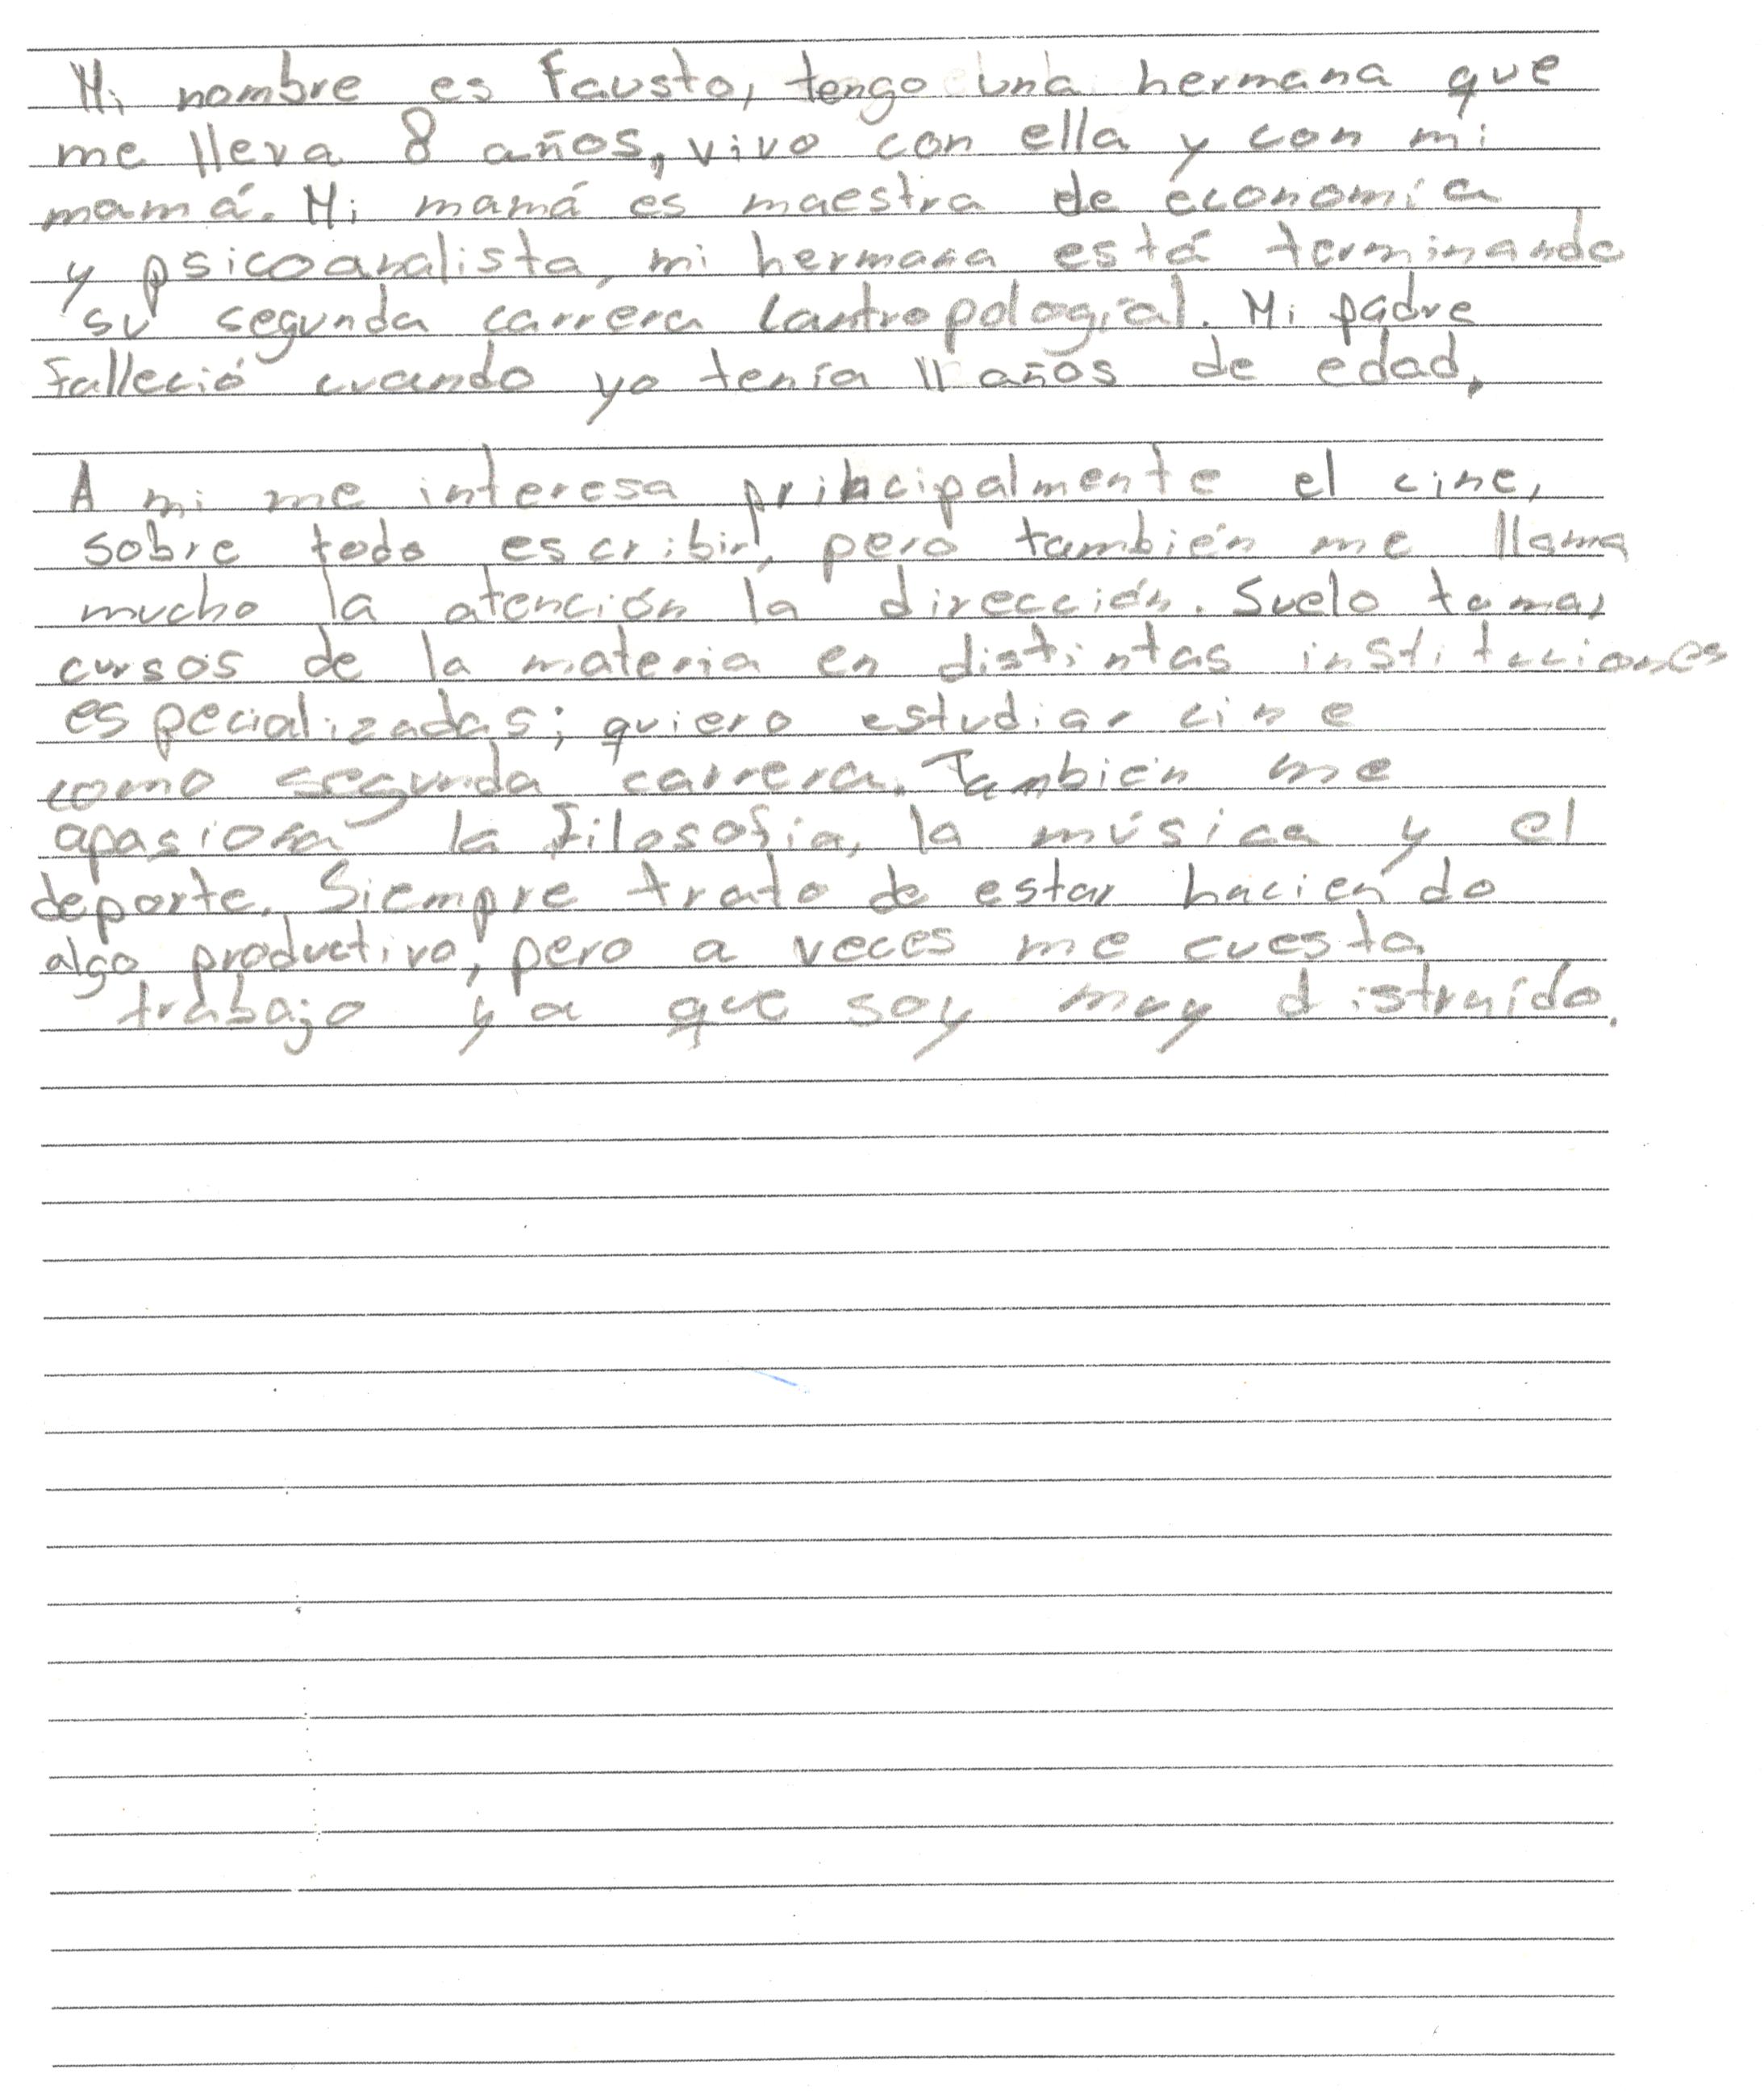 Mi nombre es Fausto, tengo una hermana que
me lleva 8 años, vivo con ella y con mi
mamá. Mi mamá es maestra de economía
y psicoanalista, mi hermana está terminando
su segunda carrera (antropología). Mi padre
falleció cuando yo tenía 11 años de edad.
A mi me interesa principalmente el cine,
sobre todo escribir, pero también me llama
mucho la atención la dirección. Suelo tomar
cursos de la materia en distintas instituciones
especializadas; quiero estudiar cine
como segunda carrera. También me
apasiona la filosofía, la música y el
deporte. Siempre trato de estar haciendo
algo productivo, pero a veces me cuesta
trabajo ya que soy muy distraído.